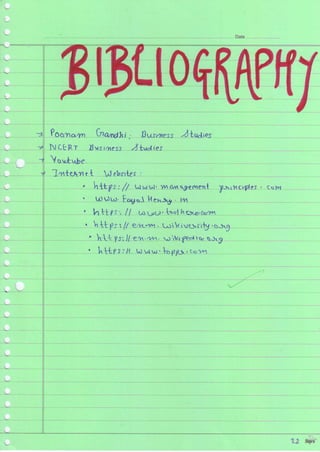 Date
BIBLIOGRAPHY
→ Poonam Gandhi; Business Studies
→ NCERT Business Studies
→ Youtube
→ Internet Websites:
• https:// www. management principles. com
• www. Fayol Henry. m
• https://
• https://en.m. wikiversity.org
• https://en.m. wikipedia.org
• https://. www.toppr.com